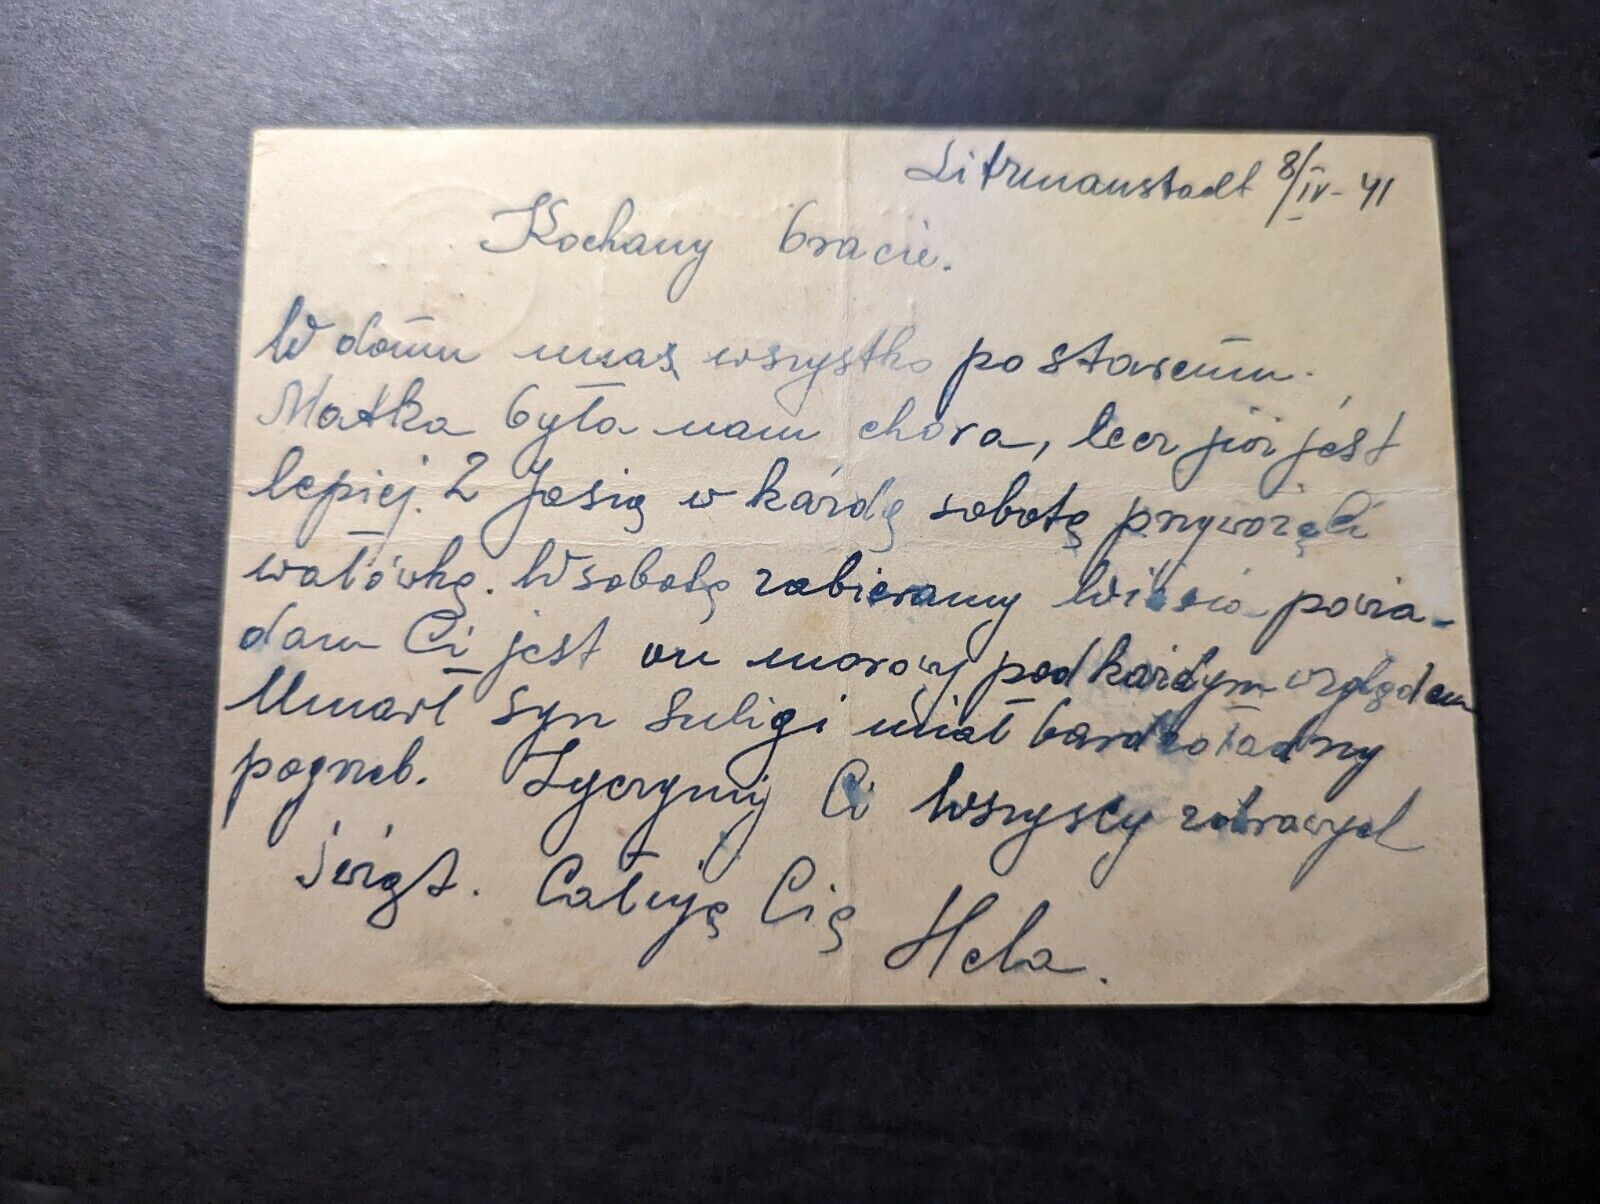 Litzmanstadt 8/IV-41
Kochany bracie.
W domu unas wszystko po staremu.
Matka była nam chora, lecz już jest
lepiej. Z Josią w każdę sobotę przywozę Ci
wałówkę. W sobotę zabieramy powia-
dam Ci jest on morowy pod każdym względem
Umarł syn Suligi miał bardzo ładny
pogrzeb. Życzymy Ci wszyscy zdrowych
świąt. Całuję Cię Hela.